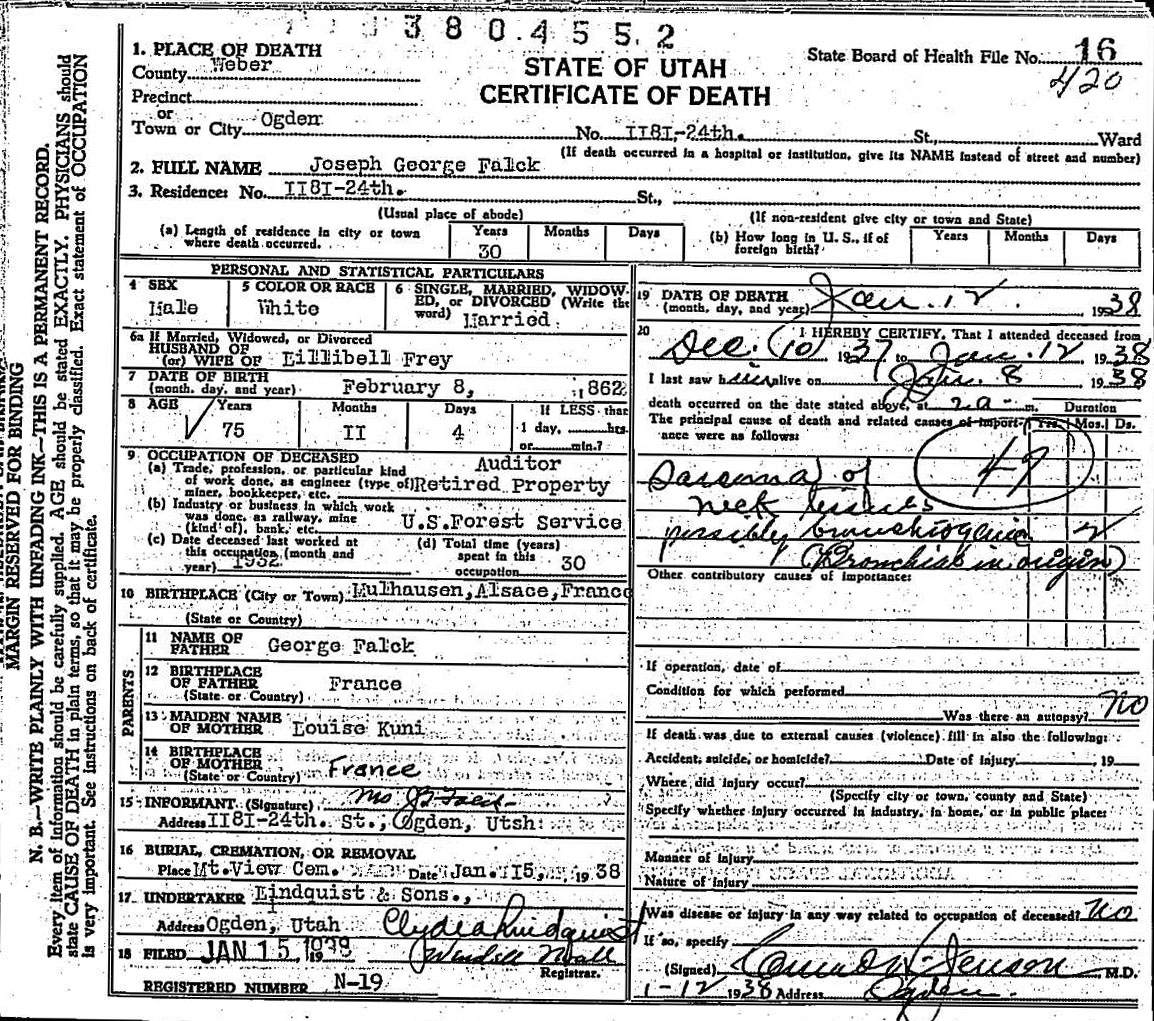 380.4552
1. PLACE OF DEATH
County Weber
STATE OF UTAH
CERTIFICATE OF DEATH
State Board of Health File No. 16
420
Precinct
or
Town or City Ogden
No. II8I-24th. St., Ward
(If death occurred in a hospital or institution, give its NAME instead of street and number)
2. FULL NAME Joseph George Falck
3. Residence: No. II8I-24th. St.,
(Usual place of abode)
(If non-resident give city or town and State)
(a) Length of residence in city or town
where death occurred.
Years Months Days
30
(b) How long in U. S., if of
foreign birth?
Years Months Days
PERSONAL AND STATISTICAL PARTICULARS
4 SEX
Male
5 COLOR OR RACE
White
6 SINGLE, MARRIED, WIDOW-
ED, or DIVORCED (Write the
word) Married
6a If Married, Widowed, or Divorced
HUSBAND OF
(or) WIFE OF Lillibell Frey
7 DATE OF BIRTH
(month, day, and year) February 8, 1862
8 AGE
Years Months Days
75 II 4
If LESS than
1 day, hrs.
or min.?
9 OCCUPATION OF DECEASED
(a) Trade, profession, or particular kind
of work done, as engineer (type of)
miner, bookkeeper, etc.
Auditor
Retired Property
(b) Industry or business in which work
was done, as railway, mine
(kind of), bank, etc. U.S.Forest Service
(c) Date deceased last worked at
this occupation (month and
year) 1932
(d) Total time (years)
spent in this
occupation 30
10 BIRTHPLACE (City or Town) Mulhausen,Alsace,France
(State or Country)
PARENTS
11 NAME OF
FATHER George Falck
12 BIRTHPLACE
OF FATHER France
(State or Country)
13 MAIDEN NAME
OF MOTHER Louise Kuni
14 BIRTHPLACE
OF MOTHER
(State or Country) France
15 INFORMANT (Signature)
Address II8I-24th. St., Ogden, Utsh
16 BURIAL, CREMATION, OR REMOVAL
Place Mt.View Cem. Date Jan. 15, 1938
17 UNDERTAKER Lindquist & Sons.,
Address Ogden, Utah Clyde Lindquist
18 FILED JAN 15 1938 Wendell
Registrar.
REGISTERED NUMBER N-19
19 DATE OF DEATH
(month, day, and year) Jan. 12. 1938
20 I HEREBY CERTIFY, That I attended deceased from
Dec. (10) 1937 to Jan. 12 1938
I last saw him alive on Jan. 8 1938
death occurred on the date stated above, at 2 a m. Duration
The principal cause of death and related causes of import-
ance were as follows:
Yrs. Mos. Ds.
49
Sarcoma of
neck tissues
possibly bronchiogenic 2
(Bronchial in origin)
Other contributory causes of importance:
If operation, date of
Condition for which performed
Was there an autopsy? No
If death was due to external causes (violence) fill in also the following:
Accident, suicide, or homicide? Date of Injury , 19
Where did injury occur?
(Specify city or town, county and State)
Specify whether injury occurred in industry, in home, or in public place:
Manner of injury
Nature of injury
Was disease or injury in any way related to occupation of deceased? No
If so, specify
(Signed) Jenson M.D.
1-12 1938 Address Ogden.
MARGIN RESERVED FOR BINDING
N. B.—WRITE PLAINLY WITH UNFADING INK—THIS IS A PERMANENT RECORD.
Every item of information should be carefully supplied. AGE should be stated EXACTLY. PHYSICIANS should
state CAUSE OF DEATH in plain terms, so that it may be properly classified. Exact statement of OCCUPATION
is very important. See instructions on back of certificate.